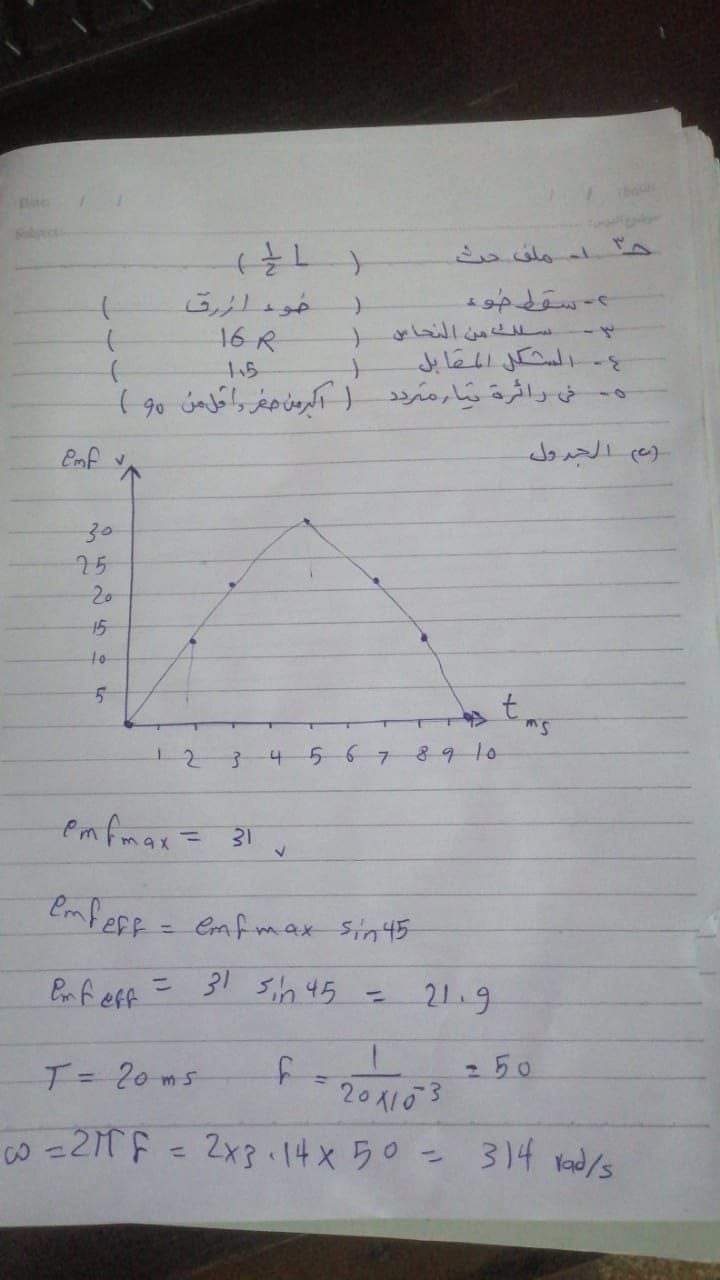 حـ٣ ١- ملف حث ( ½ L )
٢- سقط ضوء ( ضوء ازرق )
٣- سلك من النحاس ( 16 R )
٤- الشكل المقابل ( 1.5 )
٥- فى دائرة تيار متردد ( اكبر من صفر واقل من 90 )
(ب) الجدول
emf v
30
25
20
15
10
5
t ms
1 2 3 4 5 6 7 8 9 10
emf max = 31 v
emf eff = emf max sin 45
emf eff = 31 sin 45 = 21.9
T = 20 ms f = 1 / 20×10⁻³ = 50
ω = 2πf = 2×3.14×50 = 314 rad/s